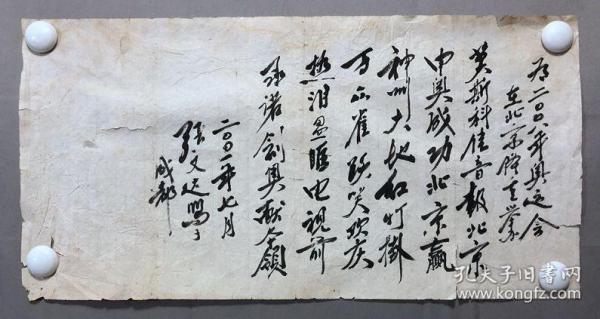 为二〇〇八年奥运会
在北京作
莫斯科佳音报北京
申奥成功北京赢
神州大地红灯掛
万众雀跃笑欢庆
热泪盈眶电视前
承诺创奥献本领
二〇〇一年七月
张文
成都
孔夫子旧书网
www.kongfz.com